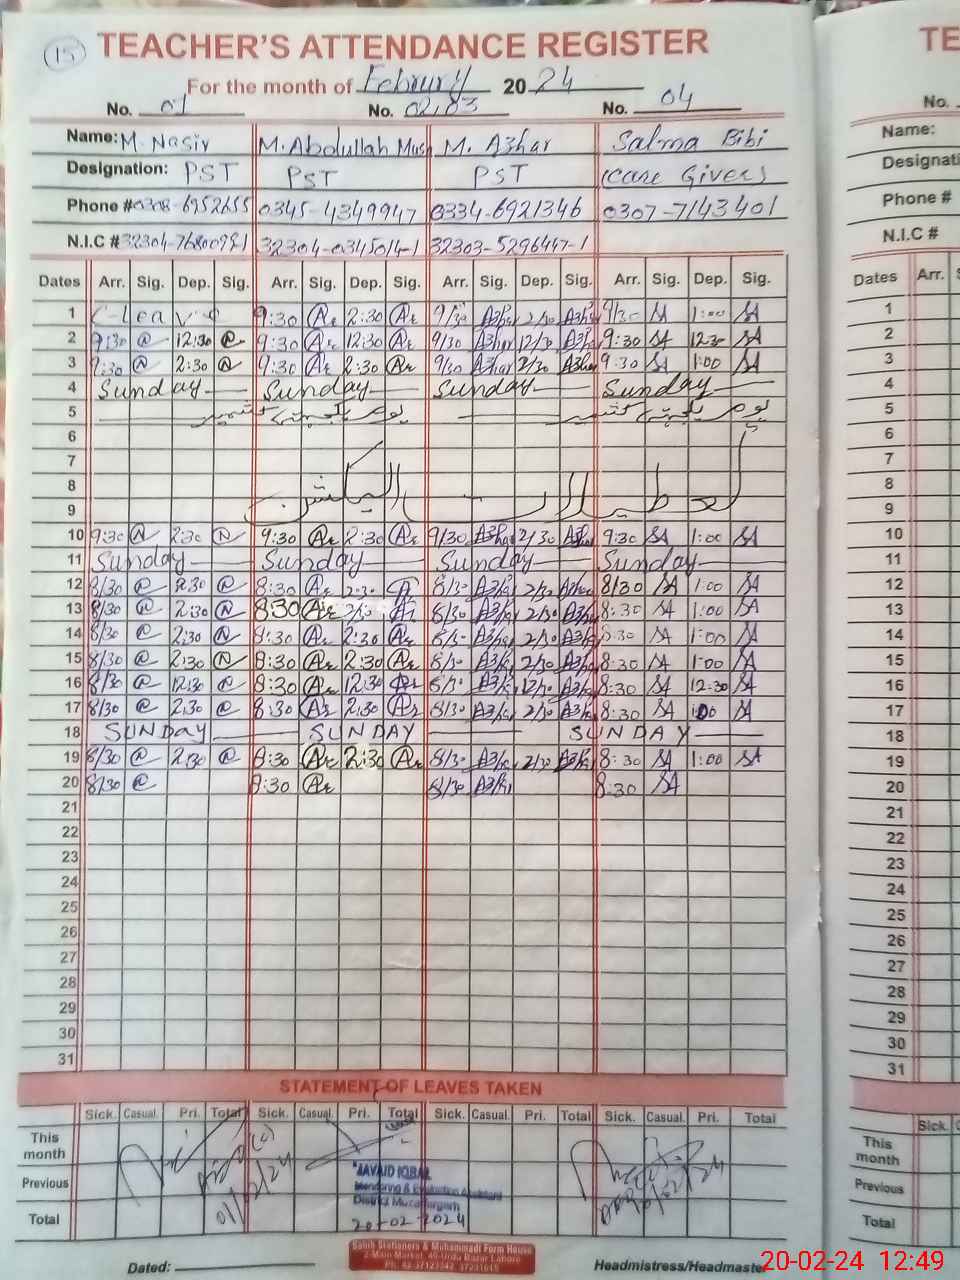 15
TEACHER'S ATTENDANCE REGISTER
For the month of Februry 2024
No. 01 No. 02,03 No. 04
Name: M. Nasir M. Abdullah M. Azhar Salma Bibi
Designation: PST PST PST (Care Giver)
Phone # 0308-6952655 0345-4349947 0334-6921346 0307-7143401
N.I.C # 32304-0345014-1 32303-5296447-1
Dates Arr. Sig. Dep. Sig. Arr. Sig. Dep. Sig. Arr. Sig. Dep. Sig. Arr. Sig. Dep. Sig.
1 C-Leave 9:30 Ar 2:30 Ar 9/30 Azhar 2/30 Azhar 9/30 SA 1:00 SA
2 9:30 @ 12:30 @ 9:30 Ar 12:30 Ar 9/30 Azhar 12/30 Azhar 9:30 SA 12:30 SA
3 9:30 N 2:30 N 9:30 Ar 2:30 Ar 9/30 Azhar 2/30 Azhar 9:30 SA 1:00 SA
4 Sunday Sunday Sunday Sunday
5 یوم یکجہتی کشمیر یوم یکجہتی کشمیر
6
7
8
9 الیکشن
10 9:30 N 2:30 N 9:30 Ar 2:30 Ar 9/30 Azhar 2/30 Azhar 9:30 SA 1:00 SA
11 Sunday Sunday Sunday Sunday
12 8/30 @ 2:30 @ 8:30 Ar 2:30 Ar 8/30 Azhar 2/30 Azhar 8/30 SA 1:00 SA
13 8/30 @ 2:30 N 8:30 Ar 2/30 Ar 8/30 Azhar 2/30 Azhar 8:30 SA 1:00 SA
14 8/30 @ 2:30 N 8:30 Ar 2:30 Ar 8/30 Azhar 2/30 Azhar 8:30 SA 1:00 SA
15 8/30 @ 2:30 N 8:30 Ar 2:30 Ar 8/30 Azhar 2/30 Azhar 8:30 SA 1:00 SA
16 8/30 @ 12:30 @ 8:30 Ar 12:30 Ar 8/30 Azhar 12/30 Azhar 8:30 SA 12:30 SA
17 8/30 @ 2:30 @ 8:30 Ar 2:30 Ar 8/30 Azhar 2/30 Azhar 8:30 SA 1:00 SA
18 SUNDAY SUNDAY SUNDAY
19 8/30 @ 2:30 @ 8:30 Ar 2:30 Ar 8/30 Azhar 2/30 Azhar 8:30 SA 1:00 SA
20 8/30 @ 8:30 Ar 8/30 Azhar 8:30 SA
21
22
23
24
25
26
27
28
29
30
31
STATEMENT OF LEAVES TAKEN
Sick. Casual. Pri. Total Sick. Casual. Pri. Total Sick. Casual. Pri. Total Sick. Casual. Pri. Total
This month
Previous
Total
JAVAID IQBAL
Monitoring & Evaluation Assistant
District Muzaffargarh
20-02-2024
Dated:
Sahib Stationers & Muhammadi Form House
2-Main Market, 40-Urdu Bazar Lahore
Headmistress/Headmaster
TE
No.
Name:
Designati
Phone #
N.I.C #
Dates Arr. S
1
2
3
4
5
6
7
8
9
10
11
12
13
14
15
16
17
18
19
20
21
22
23
24
25
26
27
28
29
30
31
Sick. C
This month
Previous
Total
20-02-24 12:49